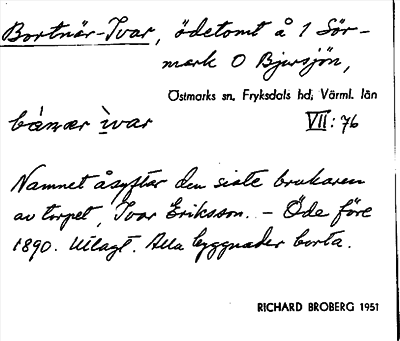 Bortnär-Ivar, ödetomt å 1 Sör-
mark O Bjursjön,
Östmarks sn, Fryksdals hd, Värml. län
bànnær ìvar
VII: 76
Namnet åsyftar den siste brukaren
av torpet, Ivar Eriksson. – Öde före
1890. Utlagt. Alla byggnader borta.
RICHARD BROBERG 1951